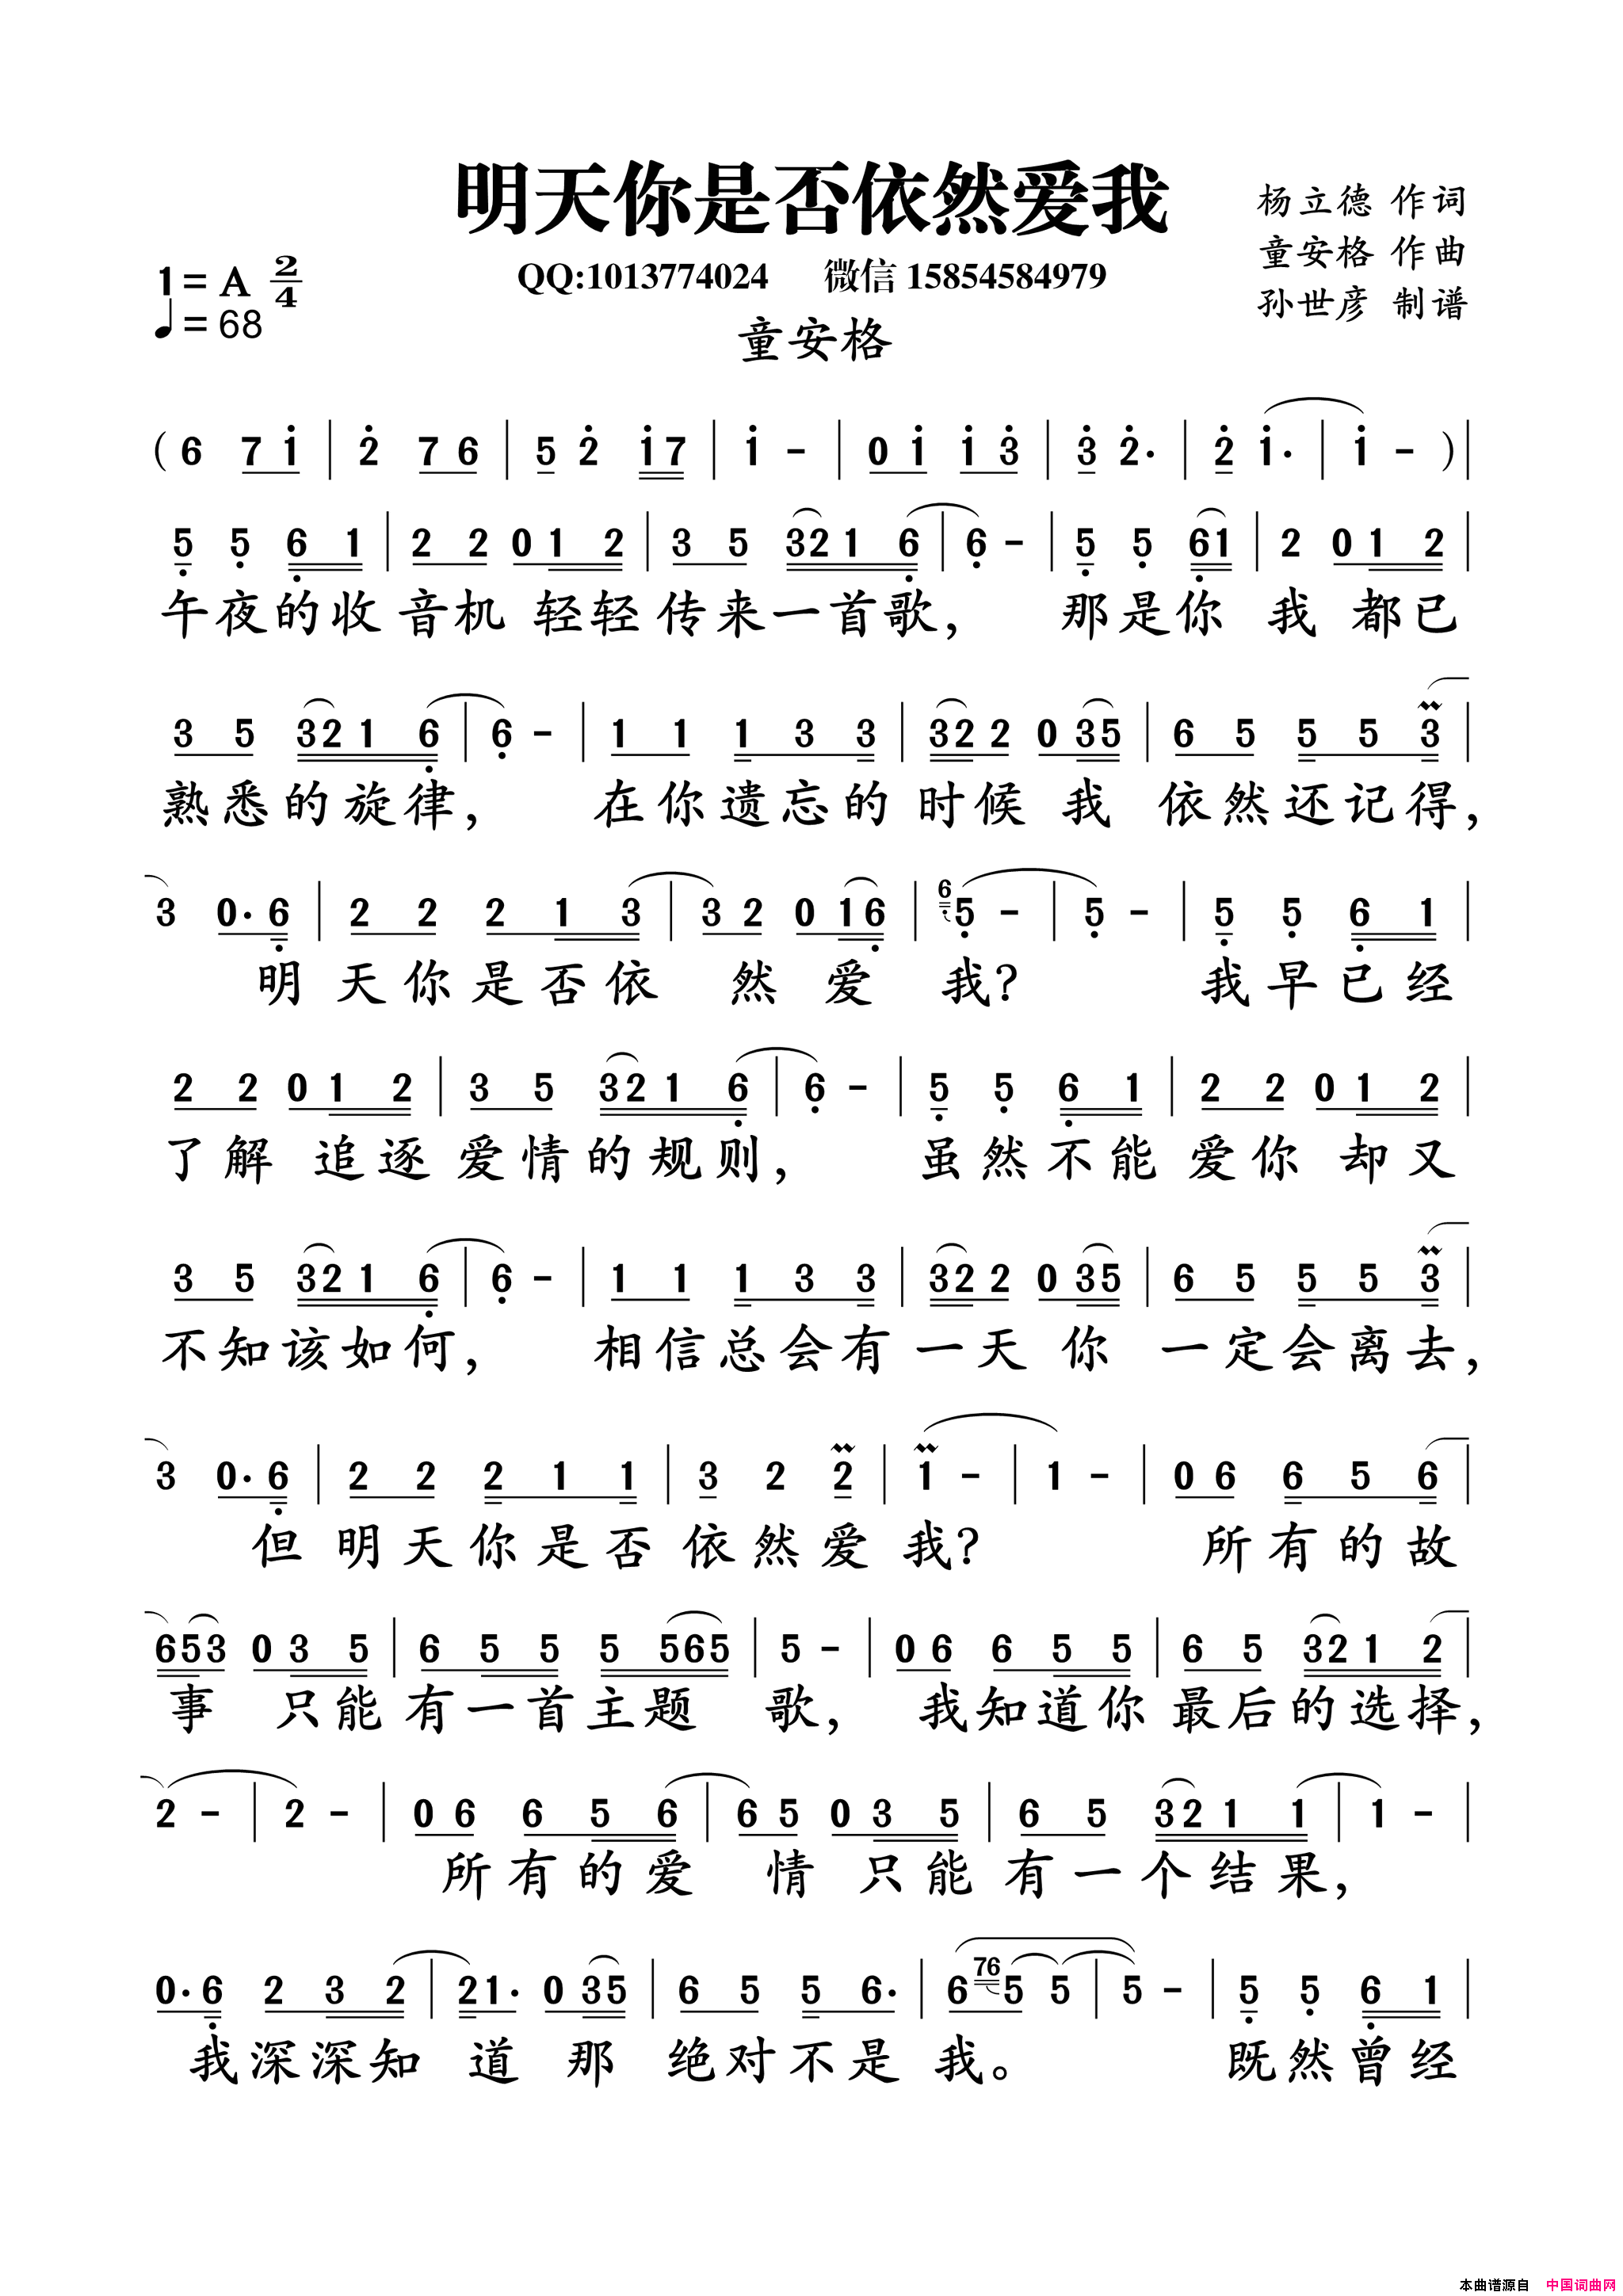 明天你是否依然爱我
杨立德 作词
童安格 作曲
孙世彦 制谱
1= A 2/4
♩= 68
QQ:1013774024 微信 15854584979
童安格
( 6 7 1̇ | 2̇ 7 6 | 5 2̇ 1̇ 7 | 1̇ - | 0 1̇ 1̇ 3̇ | 3̇ 2̇. | 2̇ 1̇. | 1̇ - ) |
5̣ 5̣ 6̣ 1 | 2 2 0 1 2 | 3 5 3 2 1 6̣ | 6̣ - | 5̣ 5̣ 6̣ 1 | 2 0 1 2 |
午夜的收音机 轻轻传来一首歌， 那是你 我 都已
3 5 3 2 1 6̣ | 6̣ - | 1 1 1 3 3 | 3 2 2 0 3 5 | 6 5 5 5 3 |
熟悉的旋律， 在你遗忘的时候 我 依然还记得，
3 0. 6̣ | 2 2 2 1 3 | 3 2 0 1 6̣ | 6̣ 5̣ - | 5̣ - | 5̣ 5̣ 6̣ 1 |
明天你是否依 然 爱 我？ 我早已经
2 2 0 1 2 | 3 5 3 2 1 6̣ | 6̣ - | 5̣ 5̣ 6̣ 1 | 2 2 0 1 2 |
了解 追逐爱情的规则， 虽然不能爱你 却又
3 5 3 2 1 6̣ | 6̣ - | 1 1 1 3 3 | 3 2 2 0 3 5 | 6 5 5 5 3 |
不知该如何， 相信总会有一天 你 一定会离去，
3 0. 6̣ | 2 2 2 1 1 | 3 2 2 | 1 - | 1 - | 0 6 6 5 6 |
但 明天你是否依然爱我？ 所有的故
6 5 3 0 3 5 | 6 5 5 5 5 6 5 | 5 - | 0 6 6 5 5 | 6 5 3 2 1 2 |
事 只能有一首主题 歌， 我知道你最后的选择，
2 - | 2 - | 0 6 6 5 6 | 6 5 0 3 5 | 6 5 3 2 1 1 | 1 - |
所有的爱 情 只能有一个结果，
0. 6̣ 2 3 2 | 2 1. 0 3 5 | 6 5 5 6. | 6 7 6 5 5 | 5 - | 5̣ 5̣ 6̣ 1 |
我深深知 道 那 绝对不是我。 既然曾经
本曲谱源自 中国词曲网